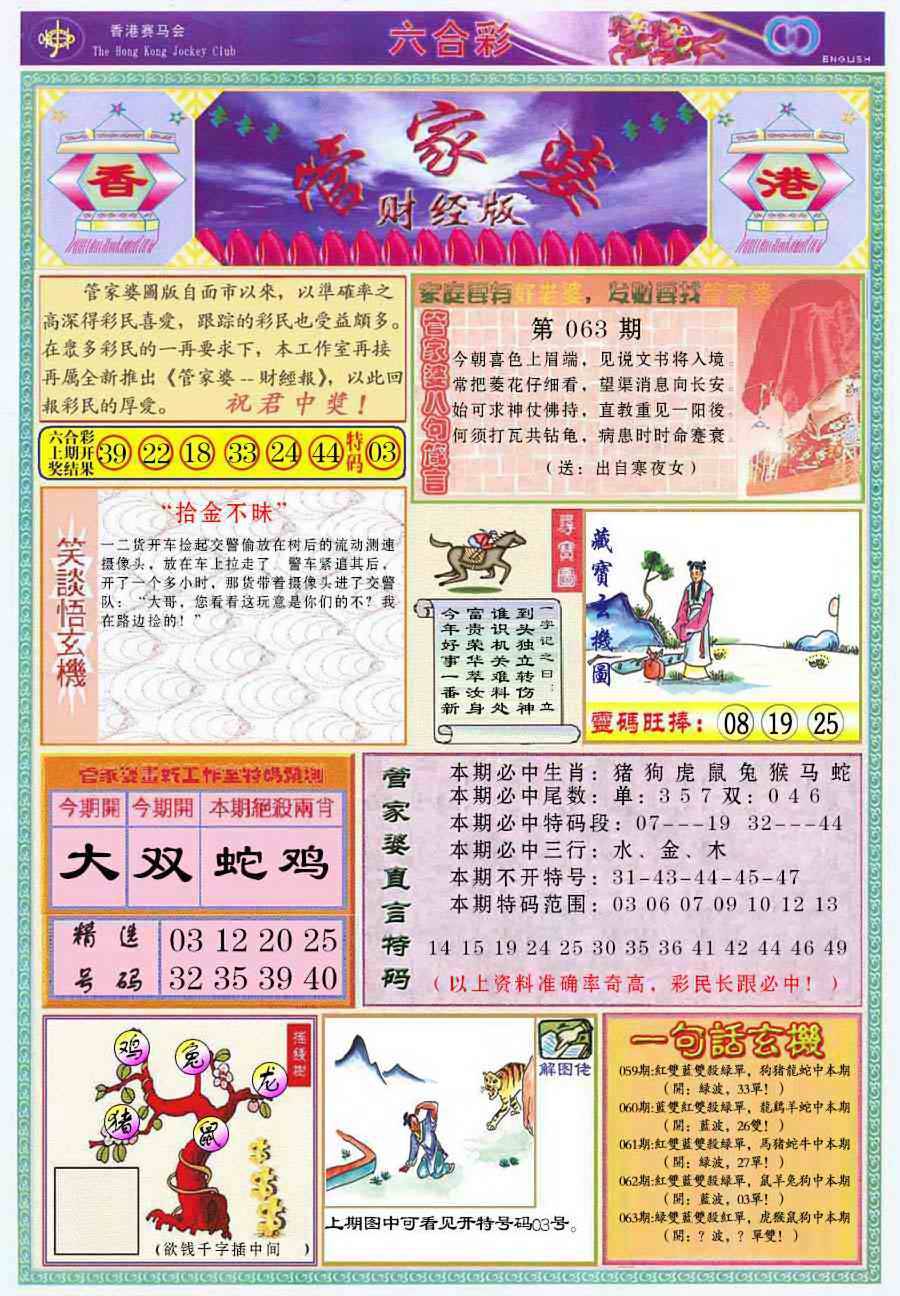 香港赛马会
The Hong Kong Jockey Club
六合彩
ENGLISH
香
管家婆
财经版
港
管家婆圖版自面市以來，以準確率之
高深得彩民喜愛，跟踪的彩民也受益頗多。
在衆多彩民的一再要求下，本工作室再接
再厲全新推出《管家婆--財經報》，以此回
報彩民的厚愛。 祝君中獎！
六合彩
上期开
奖结果
39 22 18 33 24 44 特码 03
家庭要有好老婆，发财要找管家婆
管家婆八句箴言
第 063 期
今朝喜色上眉端，见说文书将入境。
常把菱花仔细看，望渠消息向长安。
始可求神仗佛持，直教重见一阳後。
何须打瓦共钻龟，病患时时命蹇衰。
（送：出自寒夜女）
笑談悟玄機
“拾金不昧”
一二货开车捡起交警偷放在树后的流动测速
摄像头，放在车上拉走了，警车紧追其后，
开了一个多小时，那货带着摄像头进了交警
队：“大哥，您看看这玩意是你们的不？我
在路边捡的！”
尋寶圖
一字记之曰：立
到头独立转伤神
谁识机关难料处
富贵荣华萃汝身
今年好事一番新
藏寶玄機圖
靈碼旺捧： 08 19 25
管家婆畫救工作室特碼預測
今期開 今期開 本期絕殺兩肖
大 双 蛇鸡
精选号码
03 12 20 25
32 35 39 40
管家婆直言特码
本期必中生肖：猪狗虎鼠兔猴马蛇
本期必中尾数：单：3 5 7 双：0 4 6
本期必中特码段：07---19 32---44
本期必中三行：水、金、木
本期不开特号：31-43-44-45-47
本期特码范围：03 06 07 09 10 12 13
14 15 19 24 25 30 35 36 41 42 44 46 49
（以上资料准确率奇高，彩民长跟必中！）
摇錢樹
鸡
兔
龙
猪
鼠
（欲钱千字插中间 ）
解图佬
上期图中可看见开特号码03号。
一句話玄機
059期:紅雙藍雙殺綠單，狗猪龍蛇中本期
（開：綠波，33單！）
060期:藍雙紅雙殺綠單，龍鷄羊蛇中本期
（開：藍波，26雙！）
061期:紅雙藍雙殺綠單，馬猪蛇牛中本期
（開：綠波，27單！）
062期:紅雙藍雙殺綠單，鼠羊兔狗中本期
（開：藍波，03單！）
063期:綠雙藍雙殺紅單，虎猴鼠狗中本期
（開：？波，？單雙！）